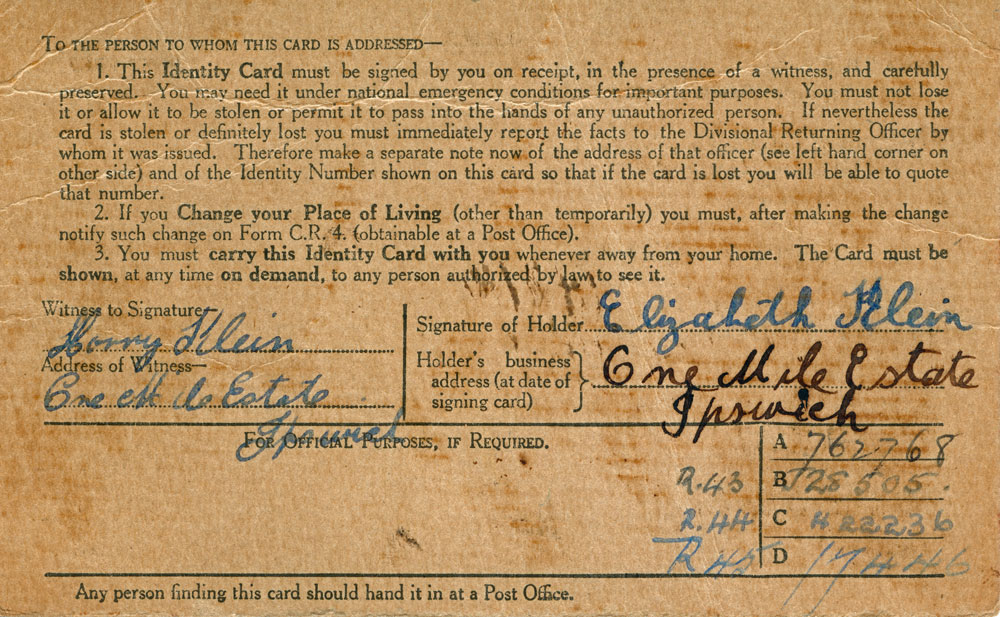 TO THE PERSON TO WHOM THIS CARD IS ADDRESSED—
1. This Identity Card must be signed by you on receipt, in the presence of a witness, and carefully
preserved. You may need it under national emergency conditions for important purposes. You must not lose
it or allow it to be stolen or permit it to pass into the hands of any unauthorized person. If nevertheless the
card is stolen or definitely lost you must immediately report the facts to the Divisional Returning Officer by
whom it was issued. Therefore make a separate note now of the address of that officer (see left hand corner on
other side) and of the Identity Number shown on this card so that if the card is lost you will be able to quote
that number.
2. If you Change your Place of Living (other than temporarily) you must, after making the change
notify such change on Form C.R. 4. (obtainable at a Post Office).
3. You must carry this Identity Card with you whenever away from your home. The Card must be
shown, at any time on demand, to any person authorized by law to see it.
Witness to Signature
Harry Klein
Address of Witness—
One Mile Estate
Ipswich
Signature of Holder Elizabeth Klein
Holder's business address (at date of signing card) } One Mile Estate
Ipswich
FOR OFFICIAL PURPOSES, IF REQUIRED.
A 762768
R.43 B 528505.
R.44 C 422236
R 45 D 17446
Any person finding this card should hand it in at a Post Office.